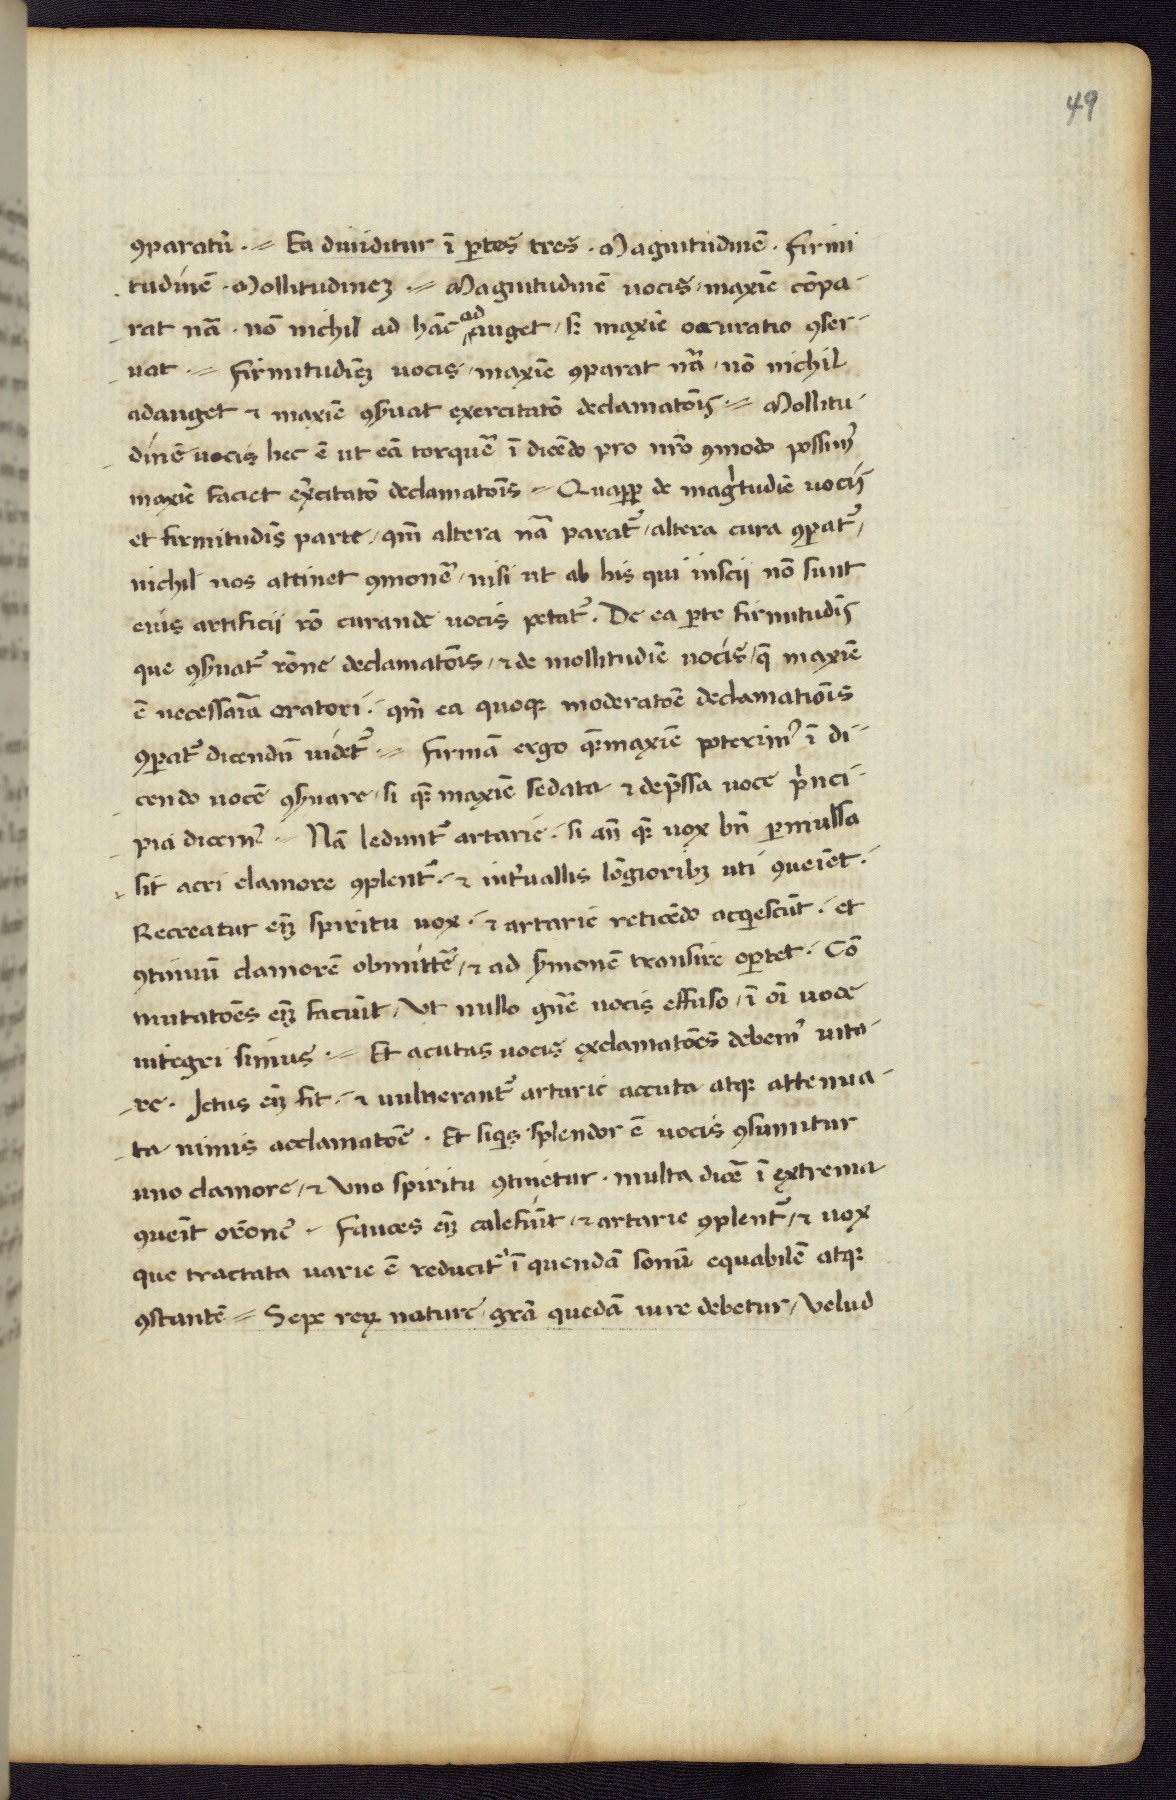 49
ꝯparatū. Ea diuiditur ī ꝑtes tres. Magnitudinē. firmi
tudinē. Mollitudineʒ. Magnitudinē uocis, maxīe cōpa-
rat nā. nō nichil ad hāc adauget, sꝫ maxīe occuratio ꝯser-
uat. firmitudīeʒ uocis, maxīe ꝯparat nrā, nō nichil
adauget & maxīe ꝯẜuat exercitatō declamatōis. Mollitu-
dinē uocis hec ē ut eā torquē ī dicēdo pro nrō ꝯmodo possimꝰ
maxīe faciet ex̄citatō declamatōis. Quaꝓp de magͥtudīe uocis
et firmitudīs parte, qm̄ altera nā parat᷑, altera cura ꝯꝑat᷑,
nichil nos attinet ꝯmonē, nisi ut ab his qui inscii nō sunt
eius artificii rō curande uocis petat᷑. De ea ꝑte firmitudīs
que ꝯẜuat᷑ rōne declamatōis, & de mollitudīe uocis, q̄ maxīe
ē necessaīa oratori. qm̄ ea quoqꝫ moderatōe declamationis
ꝯꝑat᷑ dicendū uidet᷑. firmā ergo qꝫmaxīe poterimꝰ ī di-
cendo uocē ꝯẜuare, si qꝫ maxīe sedata & dep̄ssa uoce pͥnci-
pia dicemꝰ. Nā ledunt᷑ artarie. si an̄ qꝫ uox bn̄ ꝑmulsa
sit acri clamore ꝯplent᷑. & int᷑uallis lōgioribꝫ uti ꝯueīet.
Recreatur eīʒ spiritu uox. & artarie reticēdo acqͥescūt. et
ꝯtinuū clamorē obmittē, & ad ẜmonē transire oꝑtet. Cō
mutatōes eīʒ faciūt, Ut nullo gn̄e uocis effuso, ī oī uoce
integri simus. Et acutas uocis exclamatōes debemꝰ uita-
re. Ictus eīʒ fit. & uulnerant᷑ artarie accuta atqꝫ attenua-
ta nimis acclamatōe. Et siqͥs splendor ē uocis ꝯsumitur
uno clamore, & Uno spiritu ꝯtinetur. multa dicē ī extrema
ꝯueīt orōne. Fauces eīʒ calefiūt, & artarie ꝯplent᷑, & uox
que tractata uarie ē reducit᷑ ī quendā sonū equabilē atqꝫ
ꝯstantē. Sepe reꝝ nature, grā quedā iure debetur, Velud